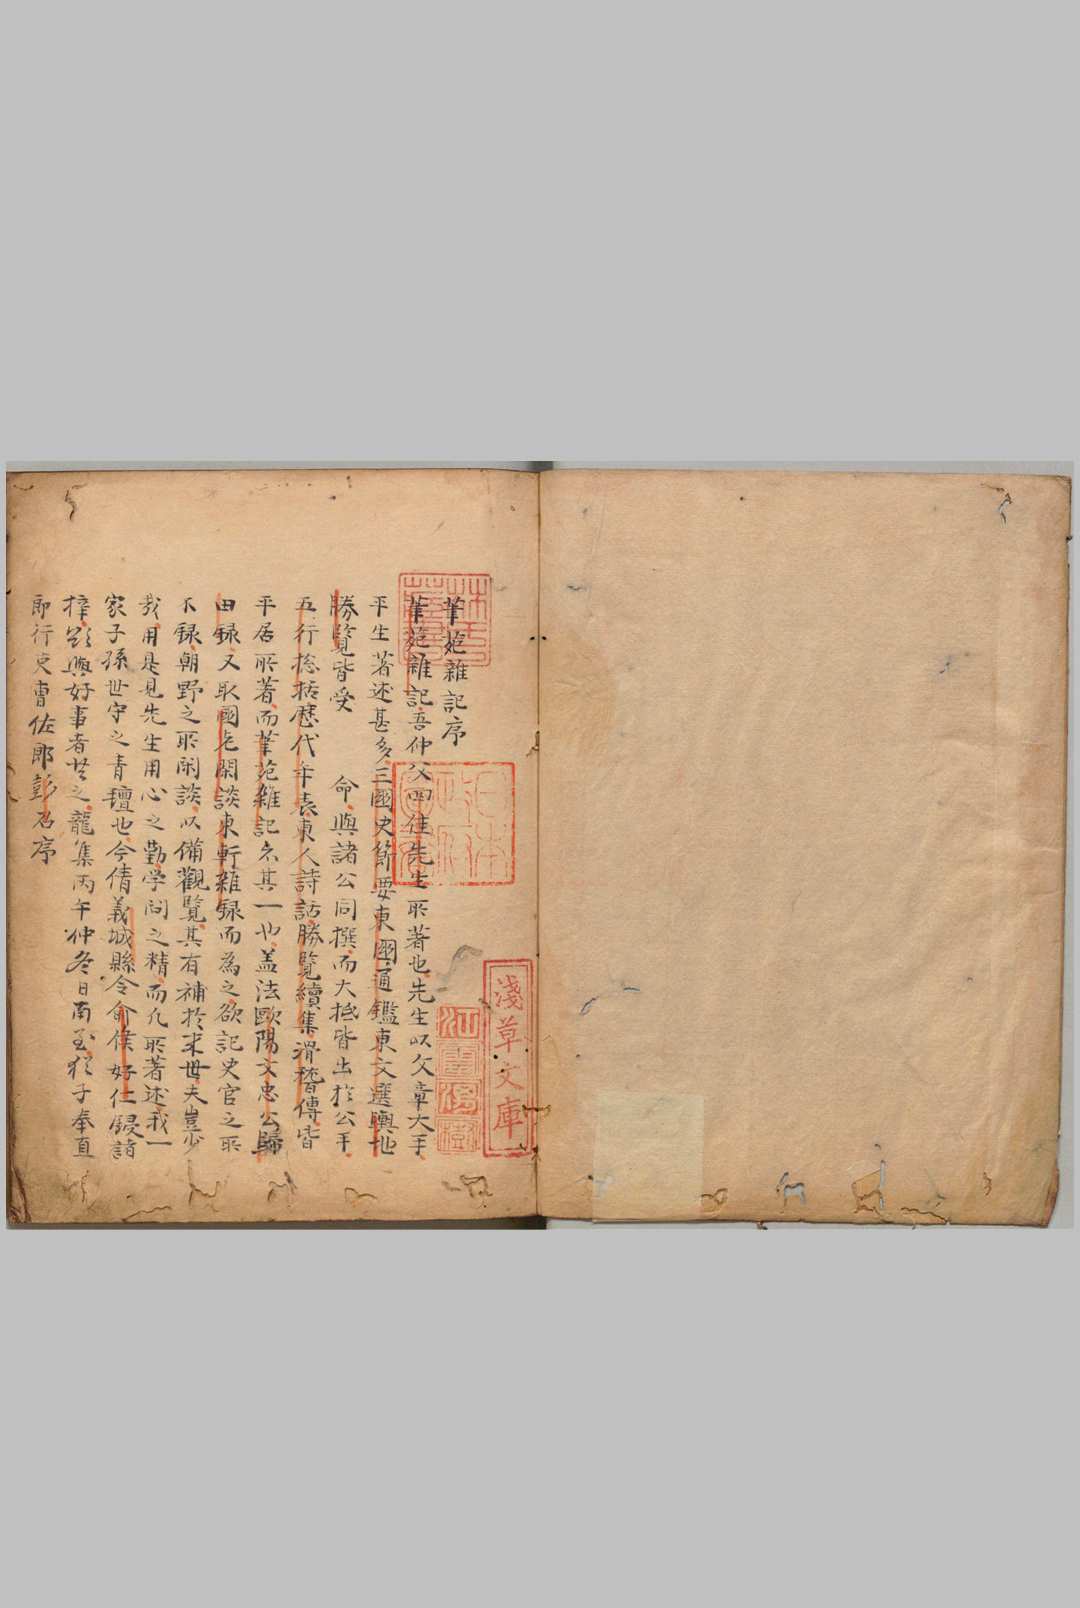 筆苑雜記序
筆苑雜記吾仲父四佳先生所著也先生以文章大手
平生著述甚多三國史節要東國通鑑東文選輿地
勝覽皆受　命與諸公同撰而大抵皆出於公手
五行捴括歷代年表東人詩話勝覽續集滑稽傳皆
平居所著而筆苑雜記亦其一也盖法歐陽文忠公歸
田録又取國老閑談東軒雜録而為之欲記史官之所
不録朝野之所閑談以備觀覽其有補於来世夫豈少
哉用是見先生用心之勤学问之精而凡所著述我一
家子孫世守之青氊也今倩義城縣令俞侯好仁鋟諸
梓歟與好事者共之龍集丙午仲冬日南至猶子奉直
郎行吏曹佐郎彭召序
淺草文庫